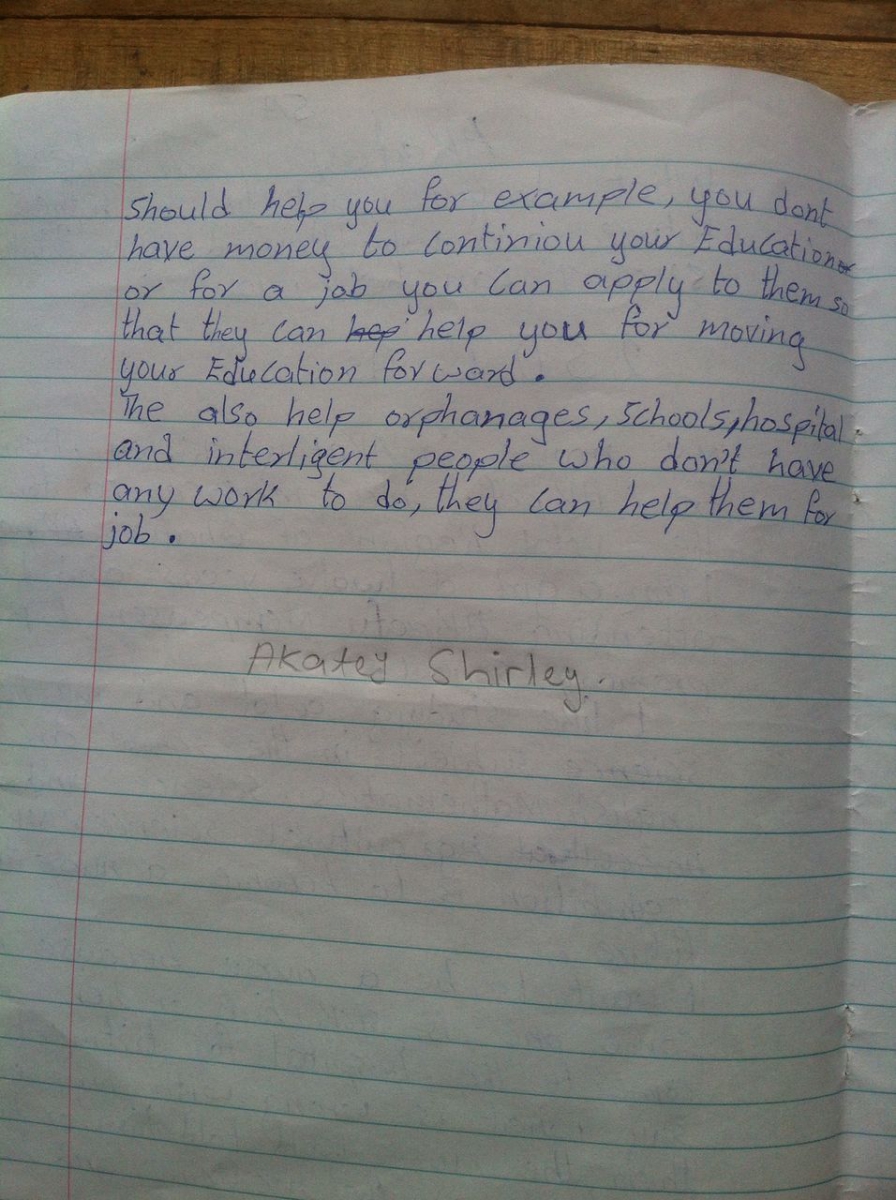 should help you for example, you dont
have money to continiou your Education
or for a job you can apply to them so
that they can hep help you for moving
your Education for ward.
The also help orphanages, schools, hospital
and interligent people who don't have
any work to do, they can help them for
job.
Akatey Shirley.